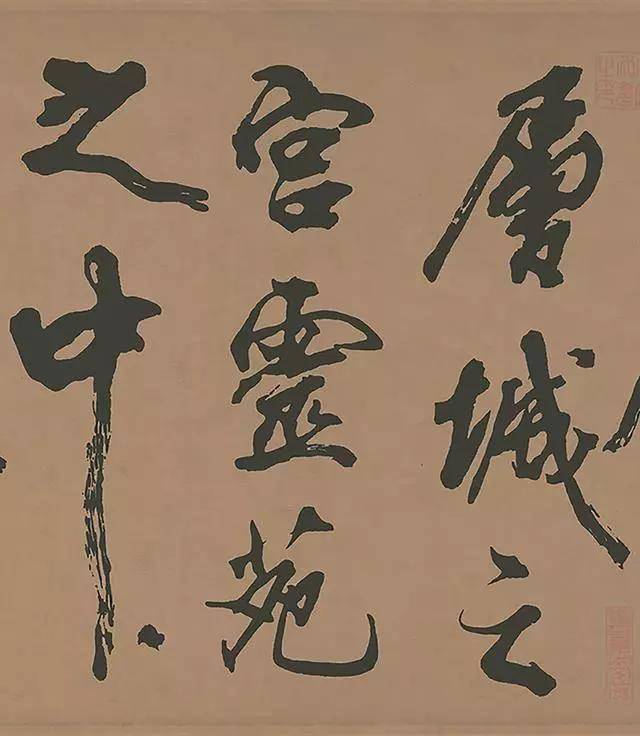 層城之
宮靈苑
之中